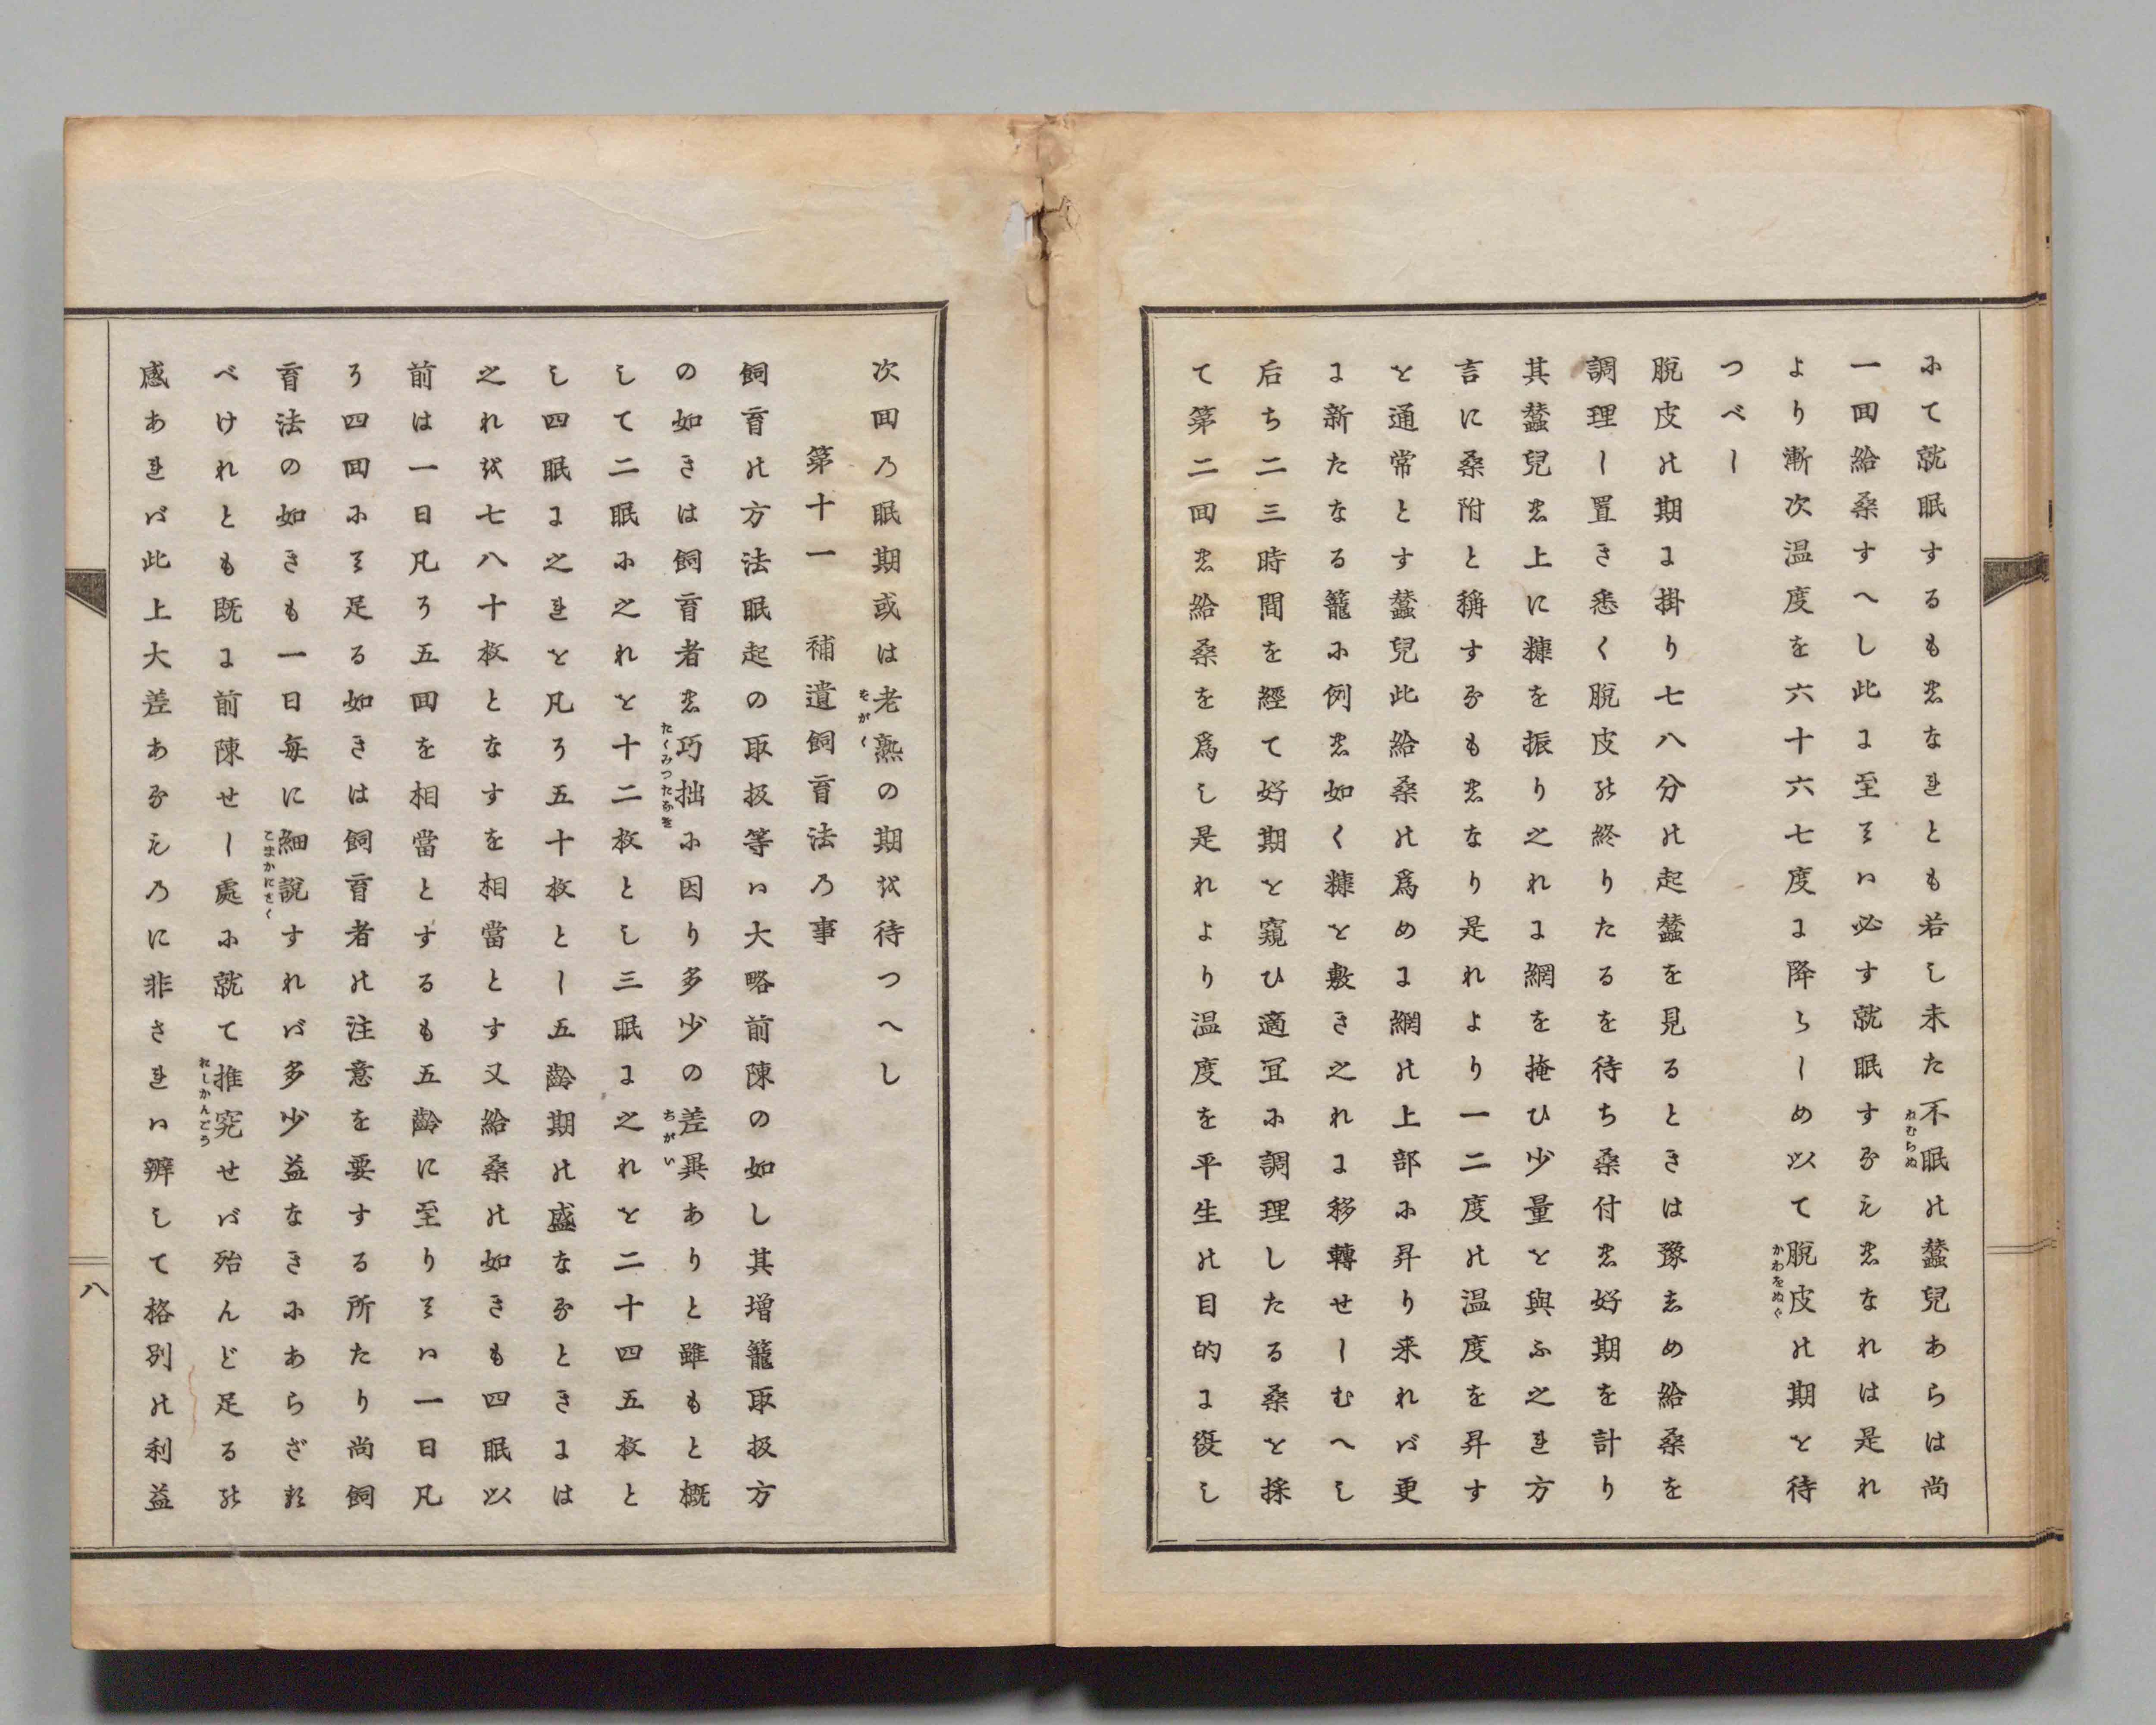 にて就眠するものなれとも若し未た不眠の蠶兒あらは尚
ねむらぬ
一回給桑すへし此に至ては必す就眠するものなれは是れ
より漸次温度を六十六七度に降らしめ以て脫皮の期を待
かわをぬぐ
つべし
脫皮の期に掛り七八分の起蠶を見るときは豫しめ給桑を
調理し置き悉く脫皮の終りたるを待ち桑付の好期を計り
其蠶兒の上に糠を振り之れに網を掩ひ少量を與ふ之れ方
言に桑附と稱するものなり是れより一二度の温度を昇す
を通常とす蠶兒此給桑の爲めに網の上部に昇り来れば更
に新たなる籠に例の如く糠を敷き之れに移轉せしむへし
后ち二三時間を經て好期を窺ひ適宜に調理したる桑を採
て第二回の給桑を爲し是れより温度を平生の目的に復し
次回の眠期或は老熟の期を待つへし
第十一　補遺飼育法の事
飼育の方法眠起の取扱等は大略前陳の如し其増籠取扱方
の如きは飼育者の巧拙に因り多少の差異ありと雖もと概
たくみつたなき
ちがい
して二眠に之れを十二枚とし三眠に之れを二十四五枚と
し四眠に之れを凡そ五十枚とし五齡期の盛なるときには
之れを七八十枚となすを相當とす又給桑の如きも四眠以
前は一日凡そ五回を相當とするも五齡に至りては一日凡
そ四回にて足る如きは飼育者の注意を要する所たり尚飼
育法の如きも一日毎に細說すれば多少益なきにあらざる
こまかにとく
べけれとも既に前陳せし處に就て推究せば殆んど足るの
おしかんごう
感あれば此上大差あるものに非されは辨して格別の利益
八